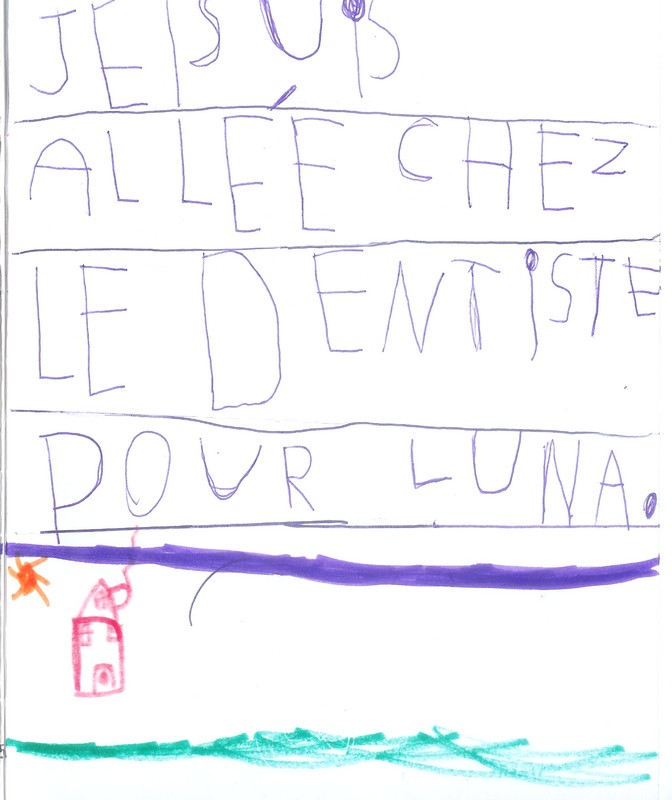 JE SUiS
ALLÉE CHEZ
LE DENTiSTE
POUR LUNA.